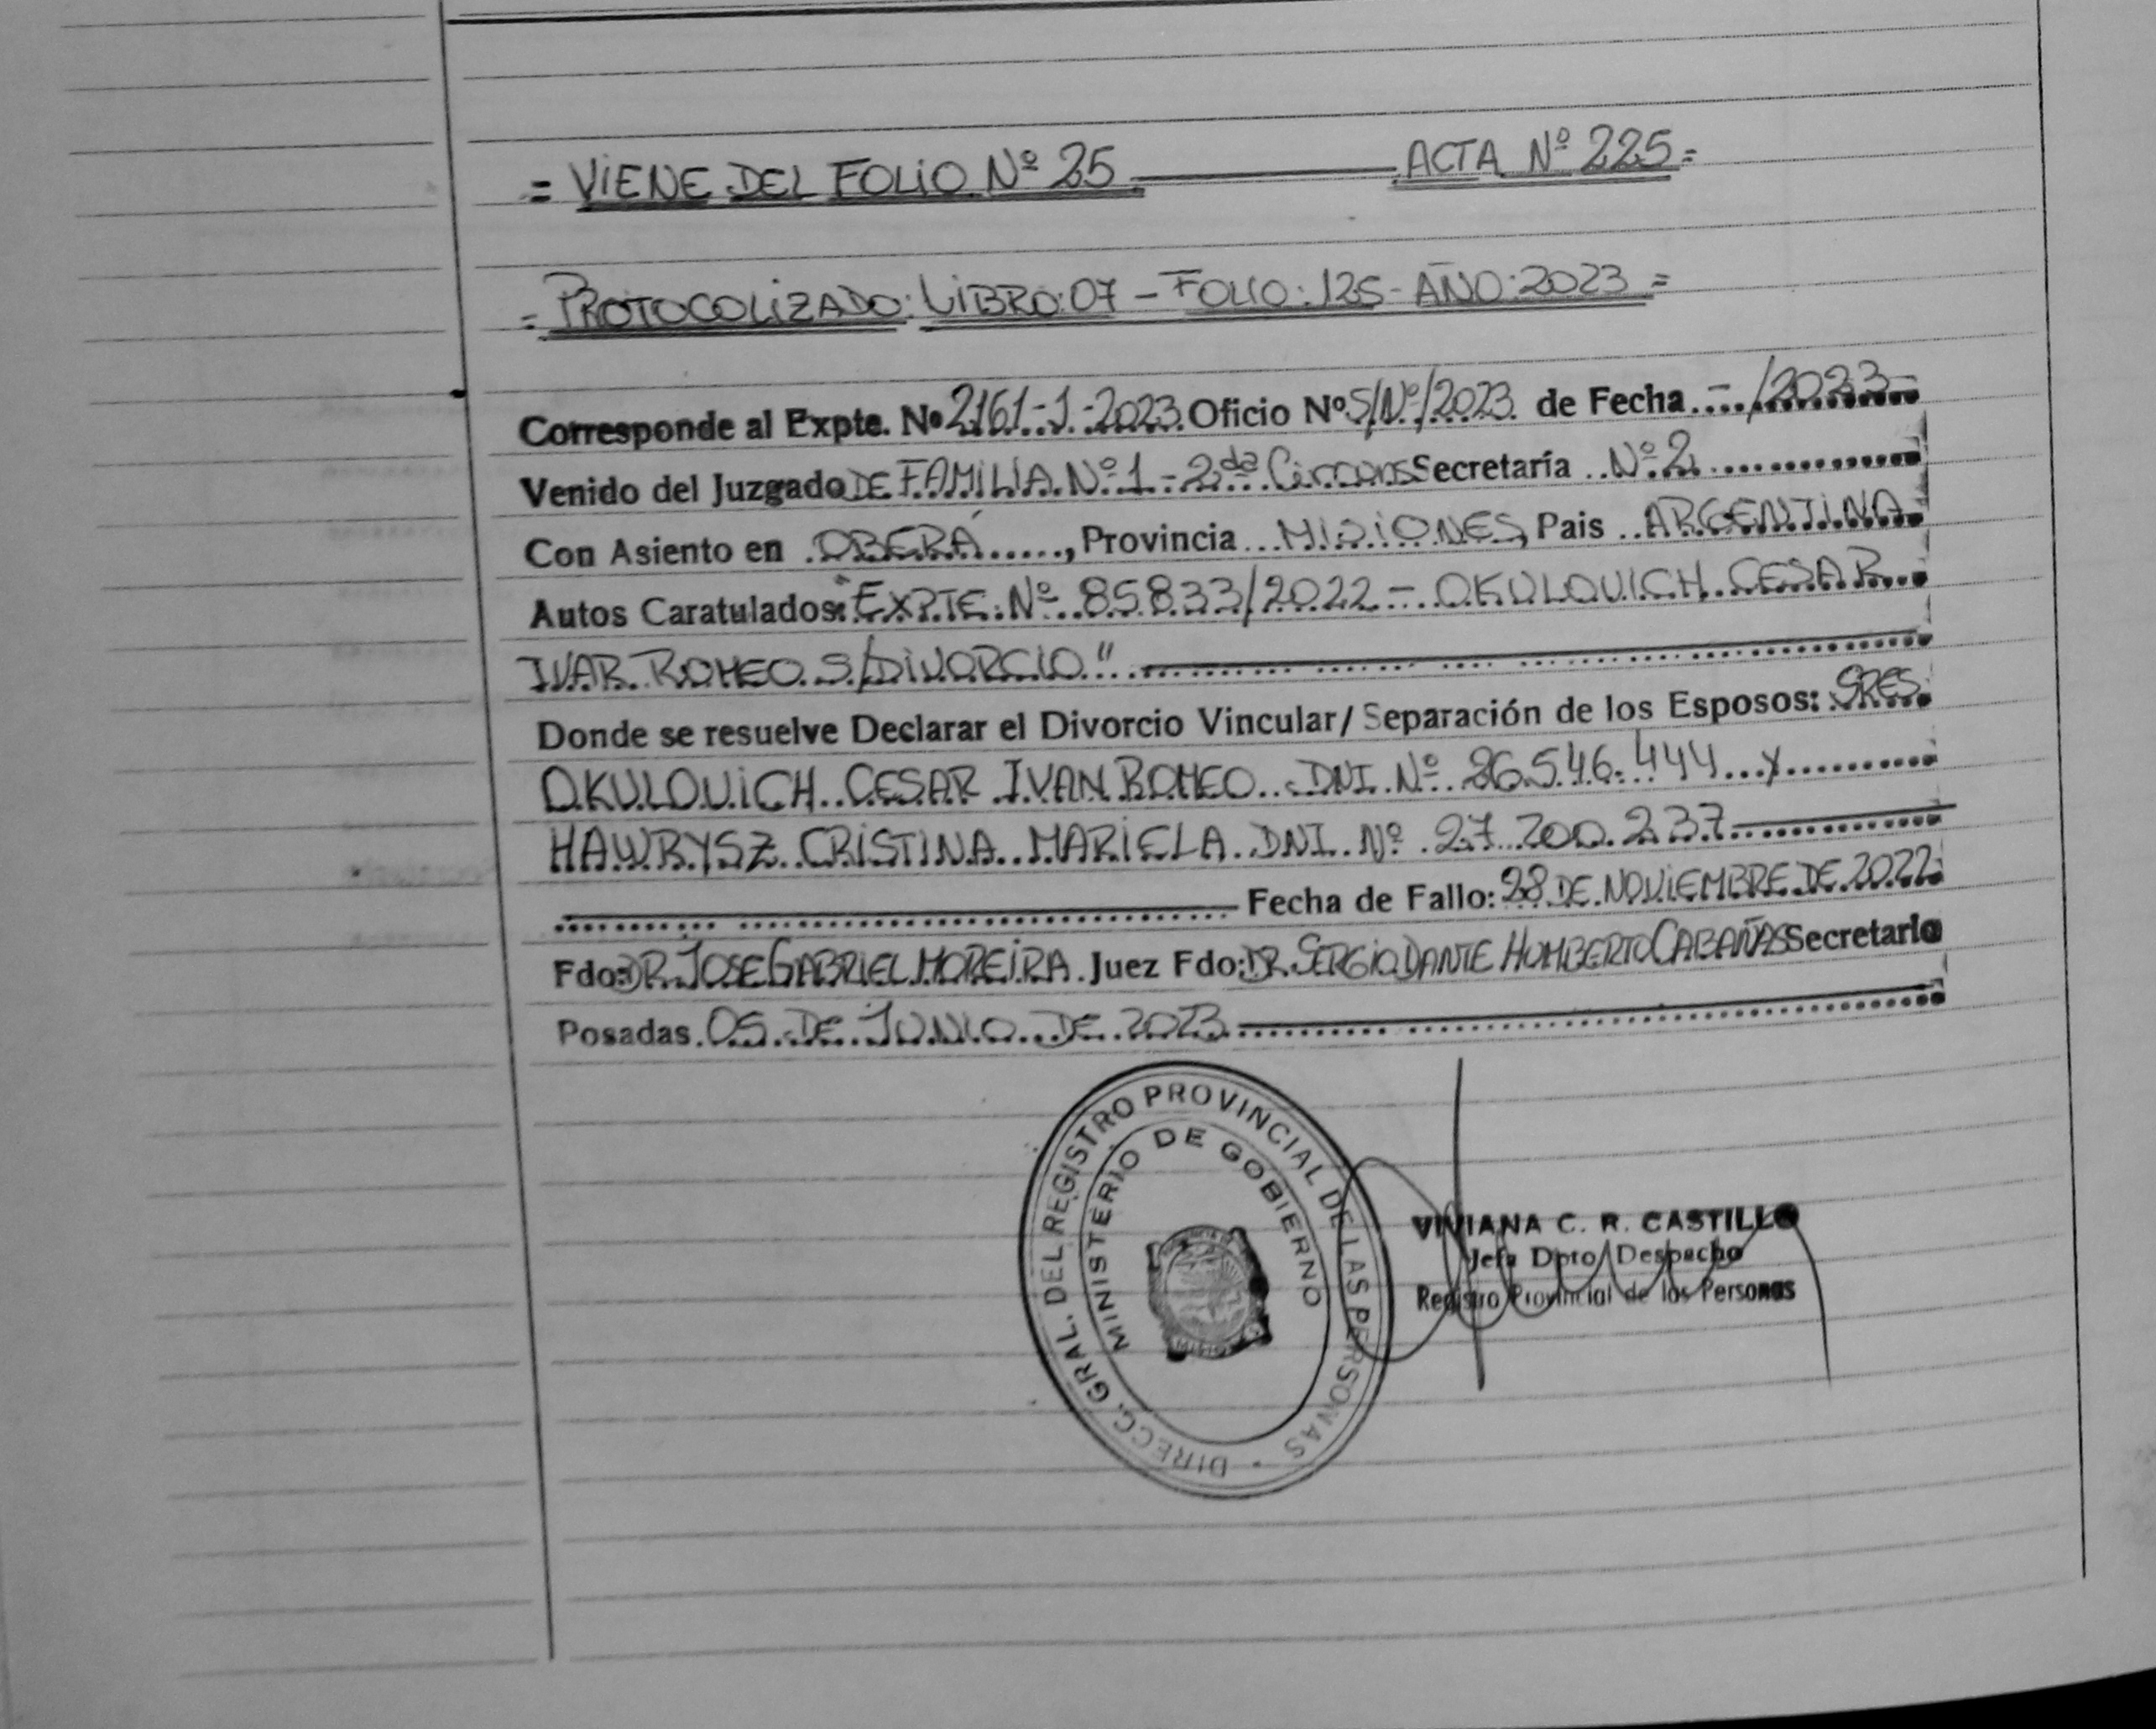 = VIENE DEL FOLIO Nº 25 ACTA Nº 225 =
= PROTOCOLIZADO: LIBRO: 07 - FOLIO: 125 - AÑO: 2023 =
Corresponde al Expte. Nº 2161-J-2023 Oficio Nº S/Nº/2023 de Fecha - /2023-
Venido del Juzgado DE FAMILIA Nº 1 - 2da Circons Secretaría Nº 2
Con Asiento en OBERÁ, Provincia MISIONES, Pais ARGENTINA
Autos Caratulados: "EXPTE. Nº 85833/2022 - OKULOVICH CESAR
IVAR ROMEO S/DIVORCIO"
Donde se resuelve Declarar el Divorcio Vincular/ Separación de los Esposos: SRES.
OKULOVICH CESAR IVAN ROMEO DNI Nº 26.546.444 y
HAWRYSZ CRISTINA MARIELA DNI Nº 27.200.237
Fecha de Fallo: 28 DE NOVIEMBRE DE 2022
Fdo: DR. JOSE GABRIEL MOREIRA Juez Fdo: DR. SERGIO DANTE HUMBERTO CABAÑAS Secretario
Posadas 05 DE JUNIO DE 2023
DIRECC. GRAL. DEL REGISTRO PROVINCIAL DE LAS PERSONAS
MINISTERIO DE GOBIERNO
VIVIANA C. R. CASTILLO
Jefa Dpto Despacho
Registro Provincial de las Personas